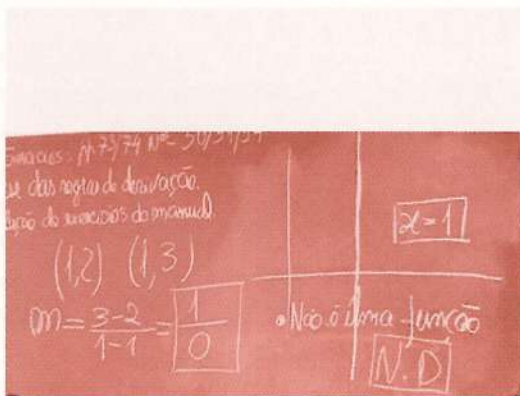 p. 73/74 Nº
das regras de derivação.
de exercícios do manual.
(1,2) (1,3)
m = 3-2/1-1 = 1/0
x=1
• Não é uma função
N.D